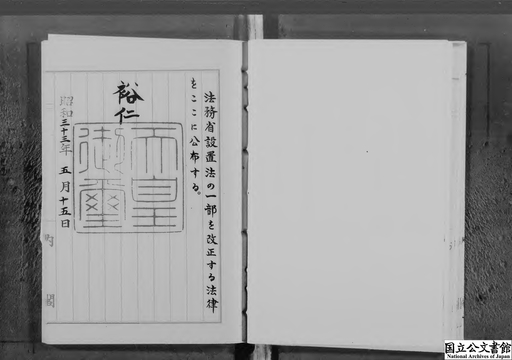 法務省設置法の一部を改正する法律
をここに公布する。
裕仁
天皇
御璽
昭和三十三年五月十五日
内閣
国立公文書館
National Archives of Japan